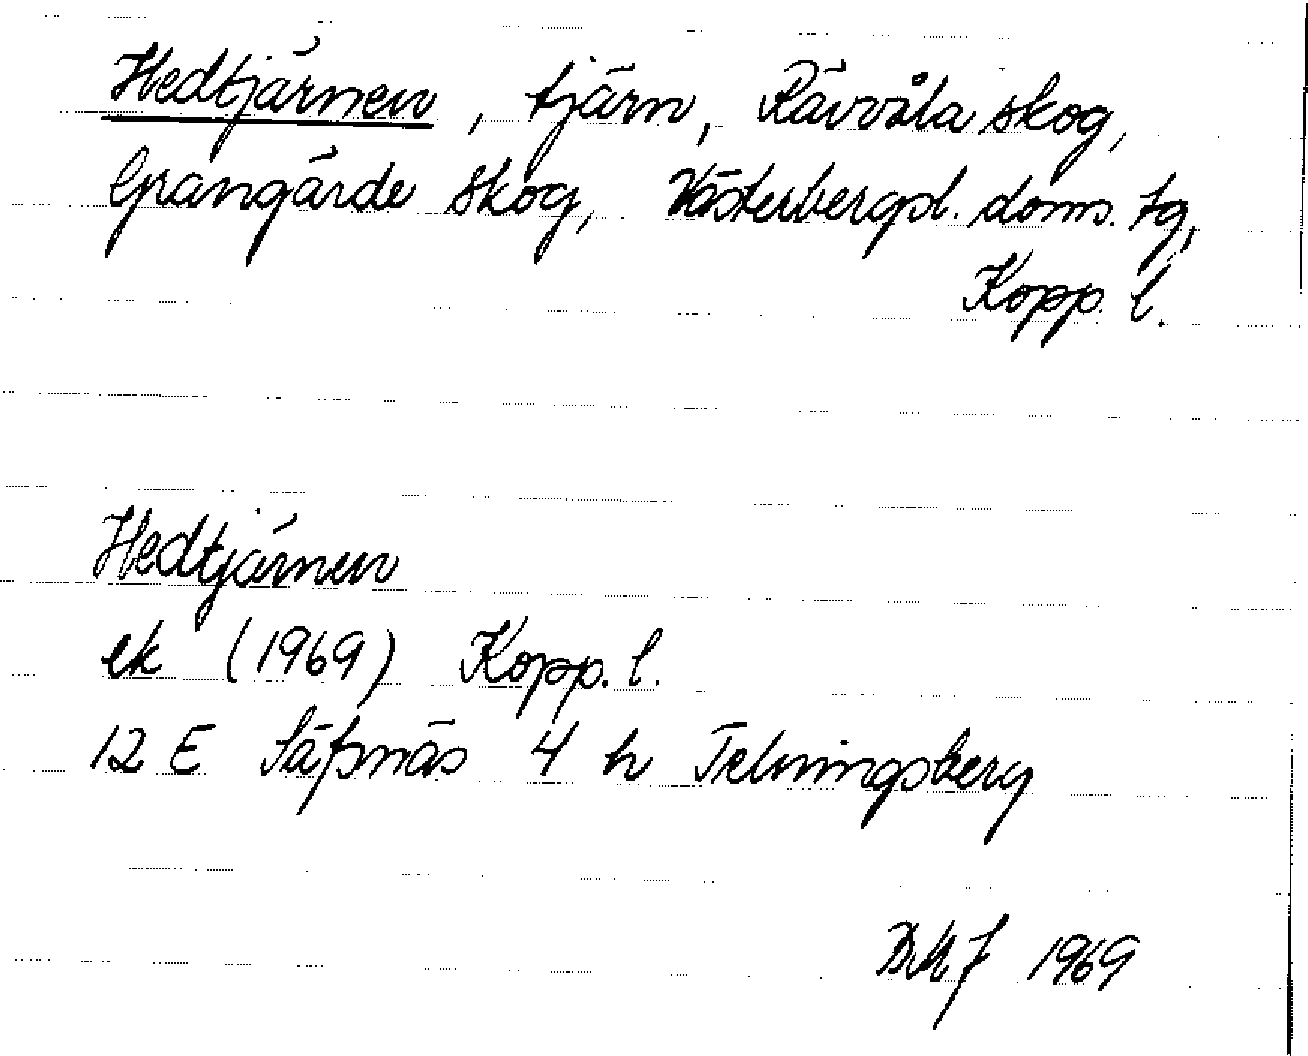 Hedtjärnen, tjärn, Rävvåla skog,
Grangärde skog, Västerbergsl. doms. tg,
Kopp. l.
Hedtjärnen
ek (1969) Kopp. l.
12 E Säfsnäs 4 h Telningsberg
BMJ 1969